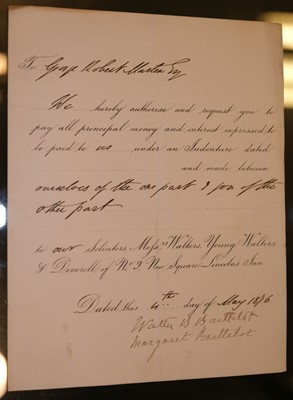 To George Robert Marten Esq
We hereby authorise and request you to
pay all principal money and interest expressed to
be paid to us under an Indenture dated
and made between
ourselves of the one part & you of the
other part
to our Solicitors Mess.rs Walters, Young Walters
& Deverell of No 9 New Square Lincolns Inn
Dated this 4th day of May 1876
Walter B Barttelot
Margaret Barttelot